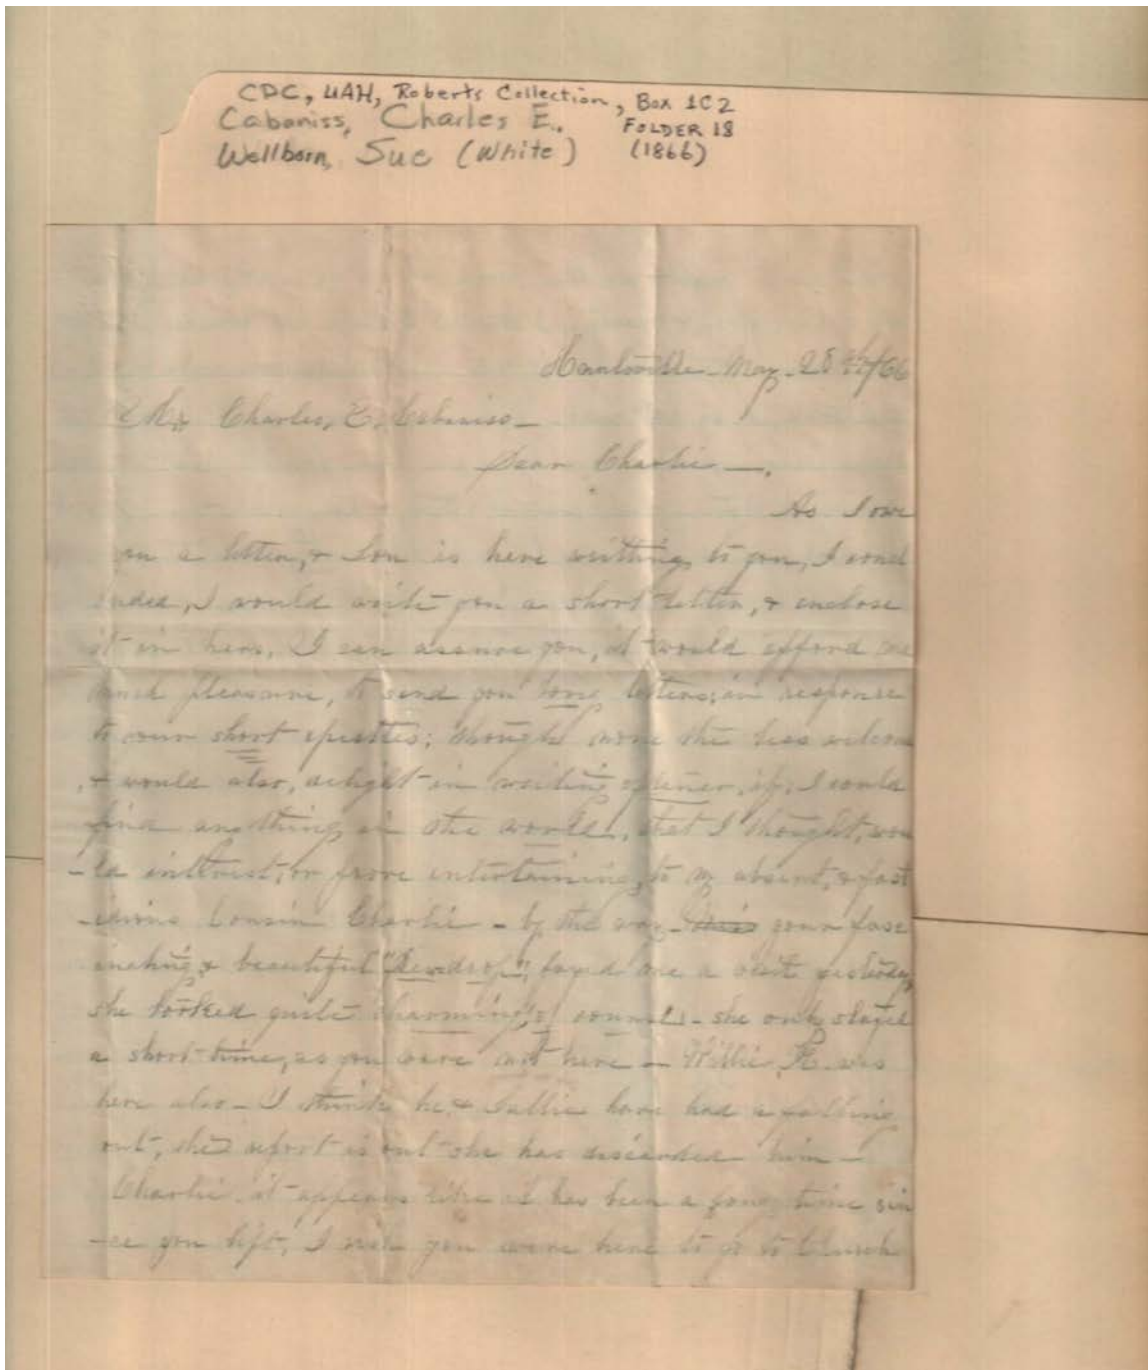 CDC, UAH, Roberts Collection, Box 1C2
Cabaniss, Charles E. FOLDER 18
Wellborn, Sue (White) (1866)
Huntsville May 28th/66
Mr Charles, E. Cabaniss—
Dear Charlie—.
As I owe
you a letter, & Lou is here writting to you, I concl
uded, I would write you a short letter, & enclose
it in hers. I can assure you, it would afford me
much pleasure, to send you long letters, in response
to your short epistles; thought none the less welcome
& would also, delight in writing oftener, if, I could
find anything in the world, that I thought, wou
-ld interest, or prove entertaining, to my absent, & fast
cousin Charlie - by the way your fasc
inating & beautiful "Dewdrop", payed me a visit yesterday,
she looked quite charming, & - she only stayed
a short time, as you were not here — Willie, R. was
here also - I think he & Sallie have had a falling
out, the report is out she has discarded him —
Charlie it appears like it has been a long time sin
-ce you left, I wish you were here to go to Church